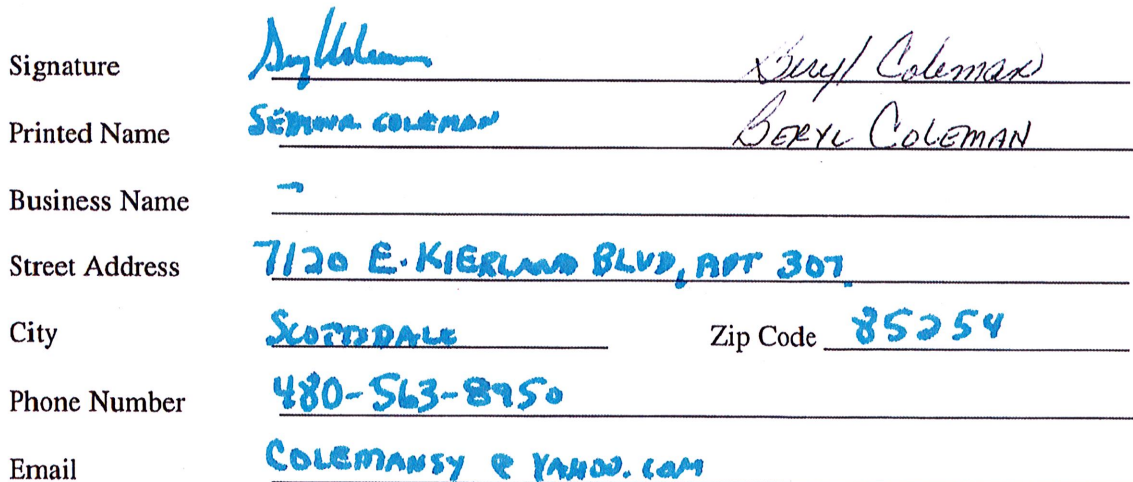 Signature Beryl Coleman
Printed Name SEYMOUR COLEMAN BERYL COLEMAN
Business Name -
Street Address 7120 E. KIERLAND BLVD, APT 307
City SCOTTSDALE Zip Code 85254
Phone Number 480-563-8950
Email COLEMANSY @ YAHOO.COM